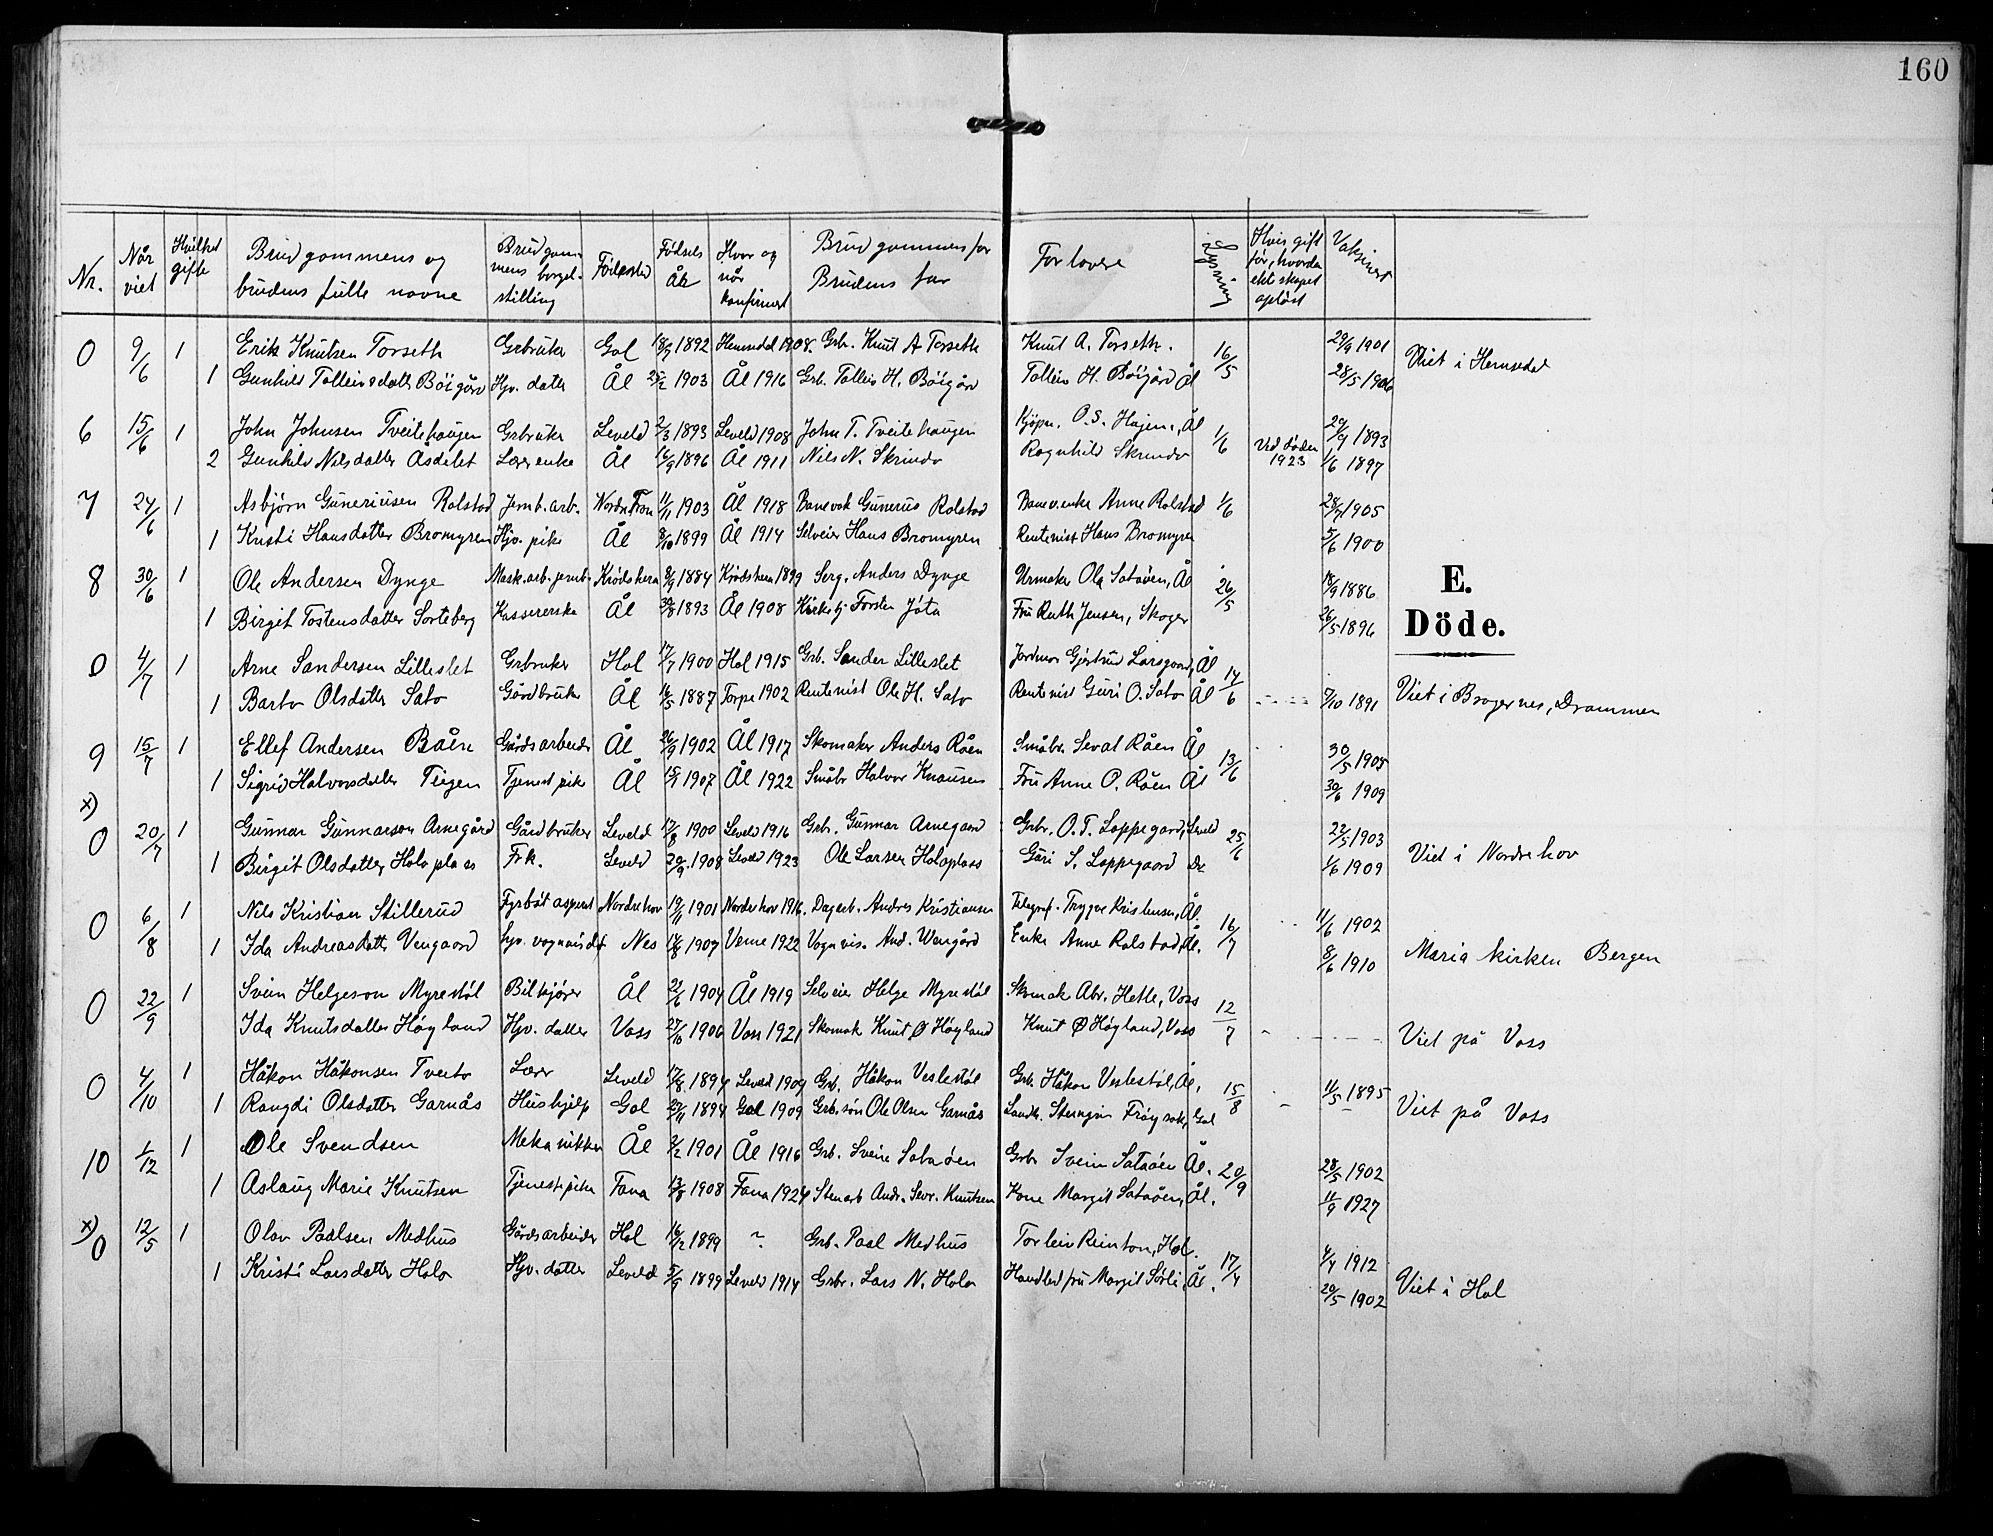 160
Nr. Når viet Hvilket gifte Brudgommens og brudens fulle navne Brudgommens borgel. stilling Födested Fødsels År Hvor og når konfirmert Brudgommens far Brudens far Forlovere Lysning Hvis gift för, hvordan ekteskapet oplöst Vaksinert
0 9/6 1 Erik Knutsen Torseth Grbruker Gol 18/9 1892 Hemsedal 1908. Grb. Knut A Torseth Knut A. Torseth. 16/5 29/9 1901 Viet i Hemsedal
1 Gunhild Tolleivsdatter Böigård Hjv. datter Ål 25/2 1903 Ål 1916 Grb. Tolleiv H. Böigård Tolleiv H. Böigård Ål 28/5 1906
6 15/6 1 John Johnsen Tveitehaugen Grbruker Leveld 2/3 1893 Leveld 1908 John T. Tveitehaugen Kjöpm. O.S. Hagen, Ål 1/6 29/9 1893
2 Gunhild Nilsdatter Åsdelet Lærerenke Ål 16/9 1896 Ål 1911 Nils N. Skrindo Ragnhild Skrindo Ved döden 1923 1/6 1897
7 24/6 1 Asbjörn Guneriusen Rolstad Jernb.arb. Nordre Fron 11/11 1903 Ål 1918 Banevok Gunerius Rolstad Banev.enke Anne Rolstad 1/6 28/7 1905
1 Kristi Hansdatter Bromyren Hjv. pike Ål 8/10 1899 Ål 1914 Selveier Hans Bromyren Rentenist Hans Bromyren 5/6 1900
8 30/6 1 Ole Andersen Dynge Mask.arb. jernb. Krödsherad 8/9 1884 Krödsherad 1899 Serg. Anders Dynge Urmaker Ola Sataöen, Ål 26/5 18/9 1886
1 Birgit Tostensdatter Sorteberg Kassererske Ål 30/8 1893 Ål 1908 Kirketj. Torsten Jota Fru Ruth Jensen, Skoger 26/5 1896
E.
Döde.
0 4/7 1 Arne Sandersen Lilleslet Grbruker Hol 17/7 1900 Hol 1915 Grb. Sander Lilleslet Jordmor Gjertrud Larsgaard, Ål 14/6
1 Barbo Olsdatter Sato Gårdbruker Ål 16/5 1887 Torpe 1902 Rentenist Ole H. Sato Rentenist Guri O. Sato Ål 7/10 1891 Viet i Bragernes, Drammen
9 15/7 1 Ellef Andersen Råen Gårdsarbeider Ål 26/9 1902 Ål 1917 Skomaker Anders Råen Småbr. Sevat Råen Ål 13/6 30/5 1905
1 Sigrid Halvorsdatter Teigen Tjenestpike Ål 15/7 1907 Ål 1922 Småbr Halvor Knausen Fru Anne O. Råen Ål 30/6 1909
x) 0 20/7 1 Gunnar Gunnarson Arnegård Gårdbruker Leveld 17/8 1900 Leveld 1916 Grb. Gunnar Arnegaard Grbr. O.T. Loppegard, Leveld 25/6 22/5 1903
1 Birgit Olsdatter Holoplass Frk. Leveld 20/9. 1908 Leveld 1923 Ole Larsen Holoplass Guri S. Loppegaard Do 1/6 1909 Viet i Nordrehov
0 6/8 1 Nils Kristian Stillerud Fyrbötaspirant Nordrehov 19/11 1901 Norderhov 1916. Dagarb. Andres Kristiansen Telegraf. Trygve Kristensen, Ål. 16/7 11/6 1902
1 Ida Andreasdatter Vengaard Hjv. vognvisdt Nes 17/8 1907 Veme 1922 Vognvis. And. Wengård Enke Anne Rolstad, Ål. 8/6 1910 Maria kirken Bergen
0 22/9 1 Svein Helgeson Myrestöl Bilkjører Ål 22/6 1904 Ål 1919 Selveier Helge Myrestöl Skomak Abr. Hetle, Voss 12/7
Ida Knutsdatter Høyland Hjv. datter Voss 27/10 1906 Voss 1921 Skomak Knut Ø Høyland Knut Ø Høyland, Voss Viet på Voss
0 4/10 1 Håkon Håkonsen Tveito Lærer Leveld 17/8 1894 Leveld 1909 Grb. Håkon Veslestöl Grb. Håkon Veslestöl, Ål. 15/8 11/5 1895
1 Rangdi Olsdatter Garnås Hushjelp Gol 29/11 1894 Gol 1909 Grb.sön Ole Olsen Garnås Landh. Steingrim Fröysok, Gol Viet på Voss
10 1/12 1 Ole Svendsen Mekanikker Ål 2/2 1901 Ål 1916 Grb. Svein Sataöen Grb. Svein Sataöen Ål. 20/9 28/5 1902
1 Aslaug Marie Knutsen Tjenestepike Fana 13/8 1908 Fana 1924 Stenarb Andr. Sevr. Knutsen Kone Margit Sataöen, Ål. 11/9 1927
x) 0 12/5 1 Olav Paalsen Medhus Gårdsarbeider Hol 16/2 1899 ? Grb. Paal Medhus Torleiv Reinton, Hol. 17/4 4/4 1912
1 Kristi Larsdatter Holo Hjv. datter Leveld 5/9 1899 Leveld 1914 Grbr. Lars N. Holo Handled fru Margit Sørli, Ål. 20/5 1902 Viet i Hol